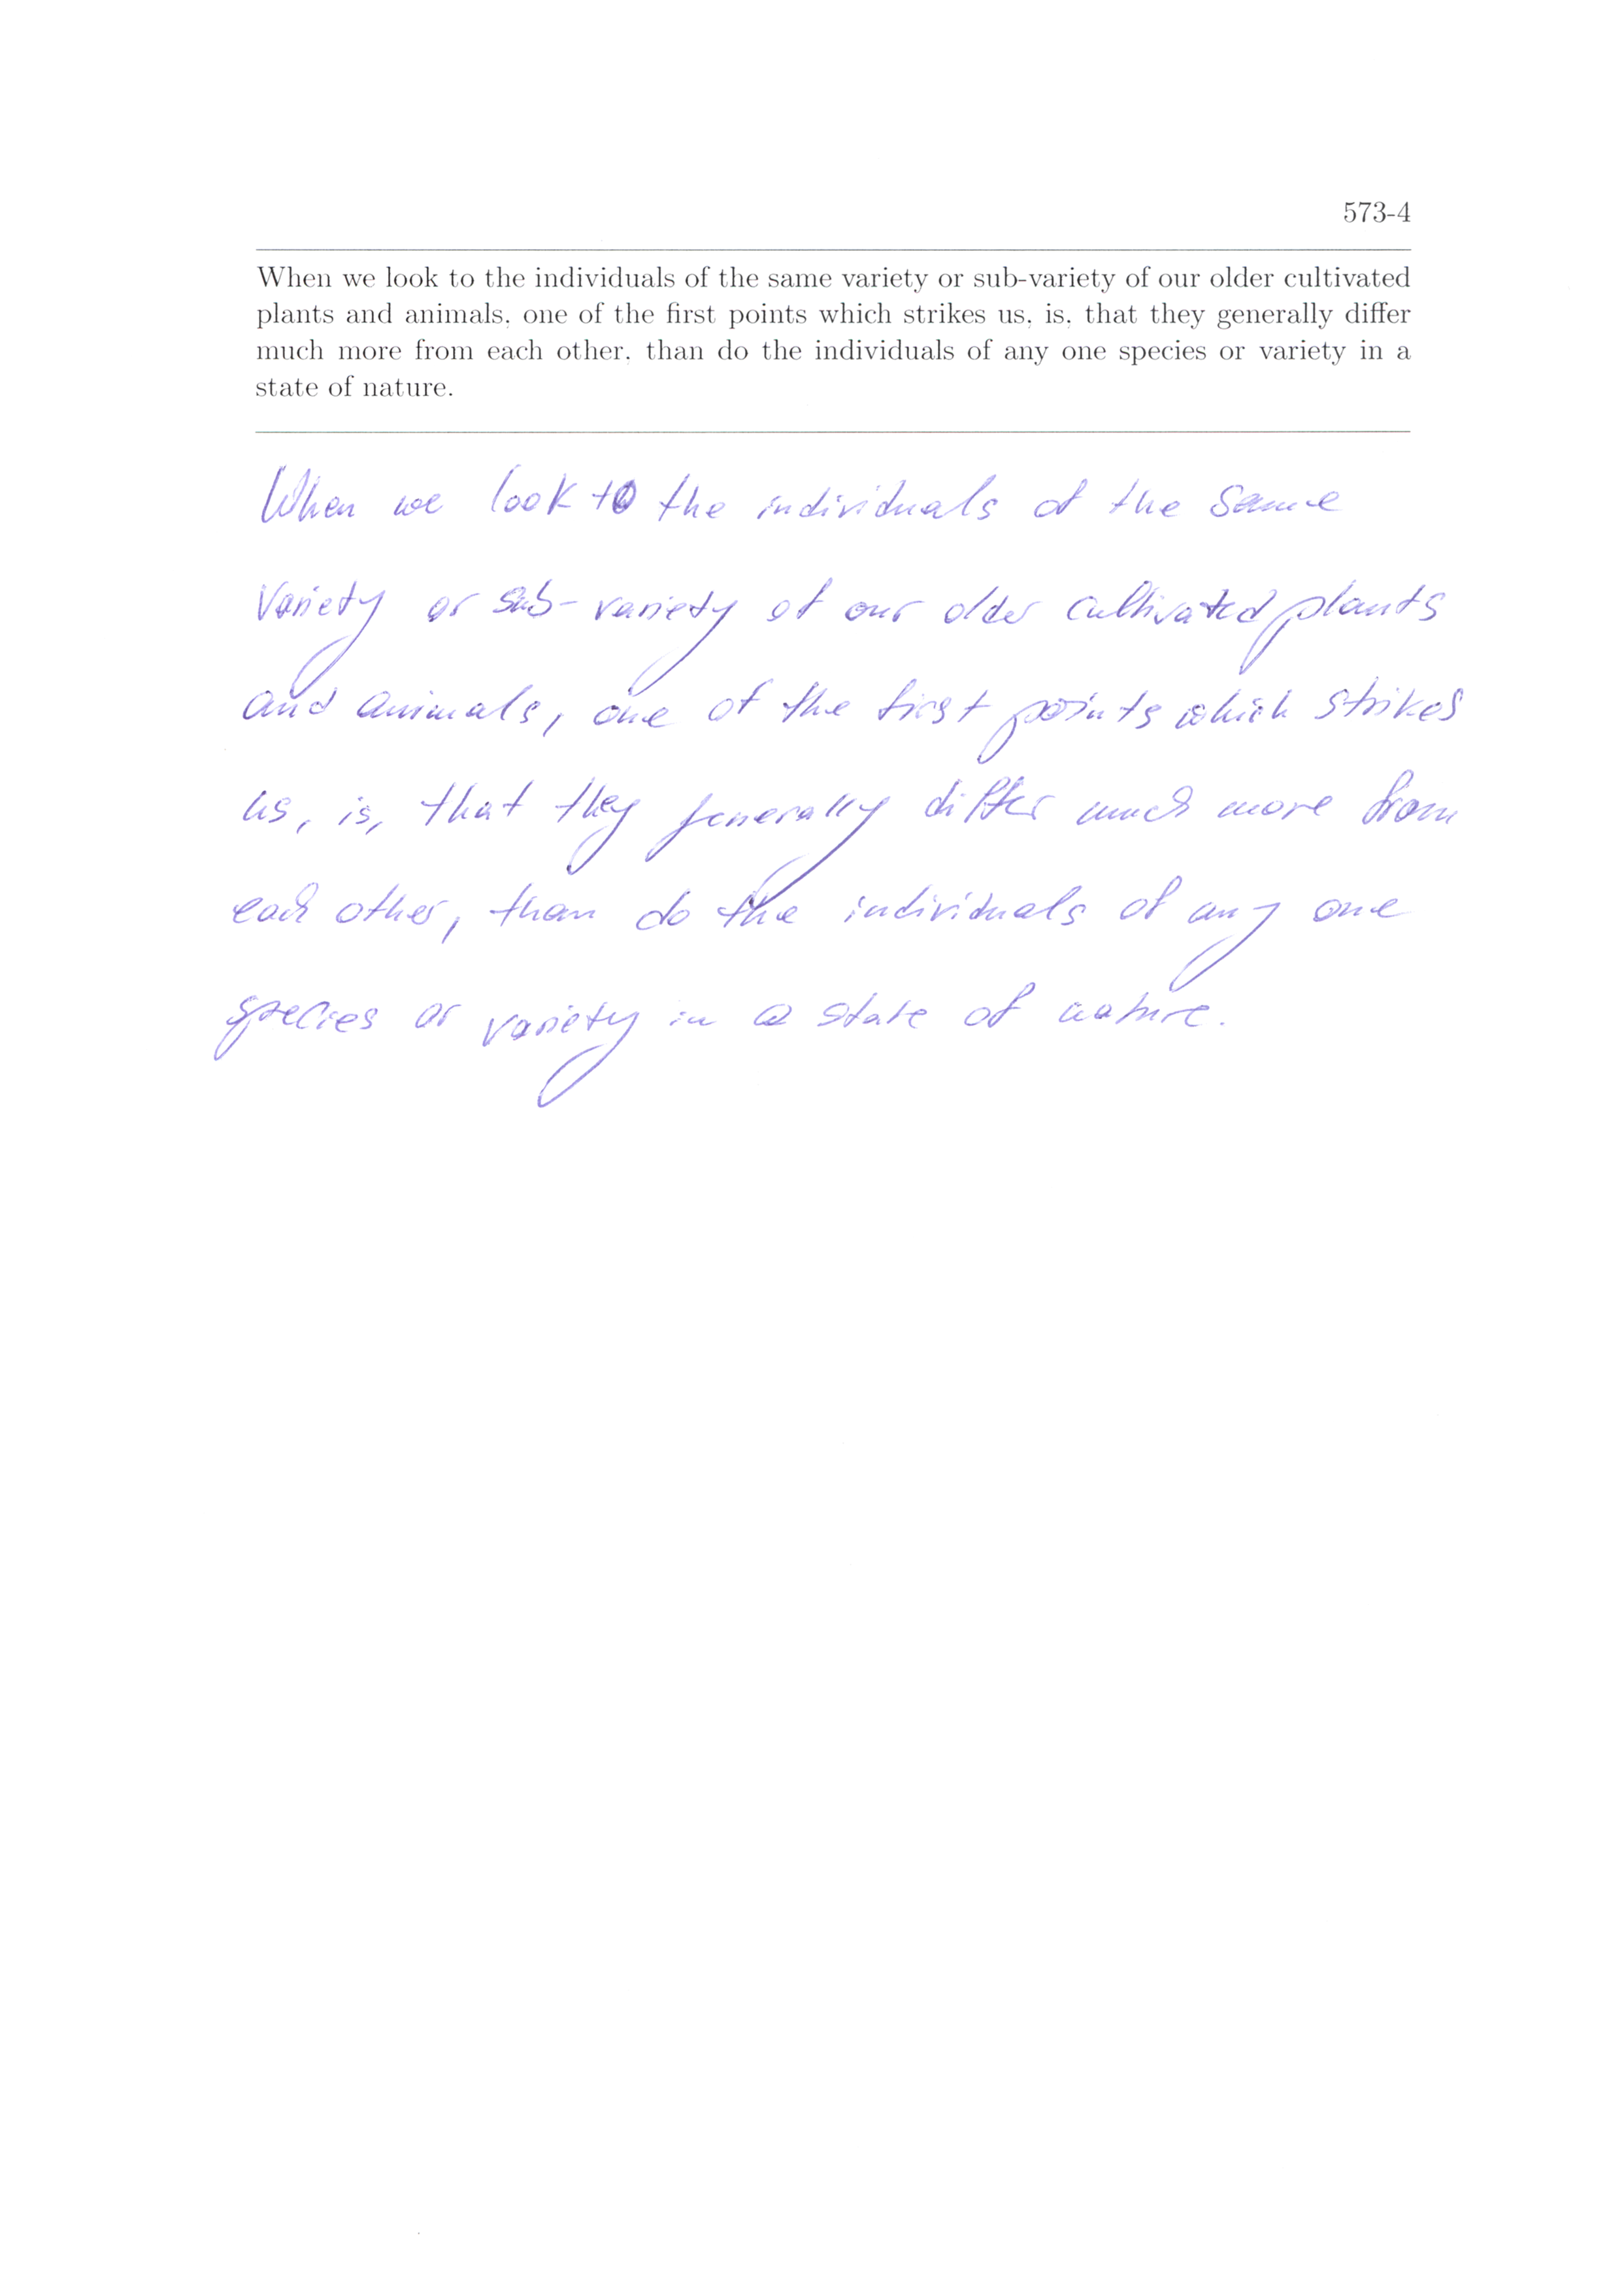 573-4
When we look to the individuals of the same variety or sub-variety of our older cultivated
plants and animals, one of the first points which strikes us, is, that they generally differ
much more from each other, than do the individuals of any one species or variety in a
state of nature.
When we look to the individuals of the same
variety or sub-variety of our older cultivated plants
and animals, one of the first points which strikes
us, is, that they generally differ much more from
each other, than do the individuals of any one
species or variety in a state of nature.